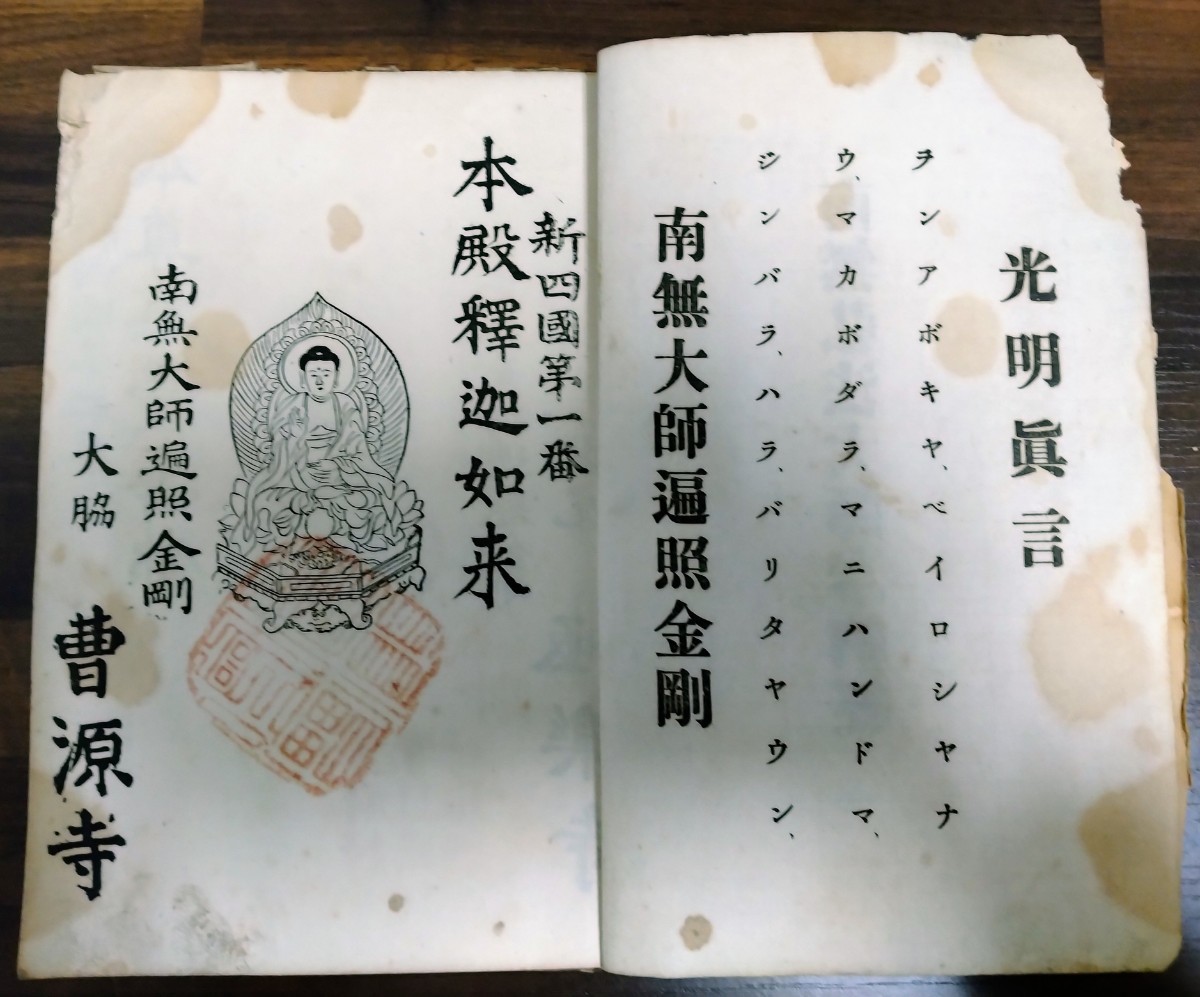 光明眞言
ヲンアボキヤ、ベイロシヤナ
ウ、マカボダラ、マニハンドマ、
ジンバラ、ハラ、バリタヤウン、
南無大師遍照金剛
新四國第一番
本殿釋迦如来
南無大師遍照金剛
大脇
曹源寺